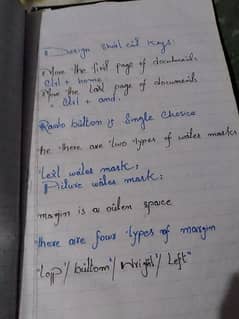 Design short cut keys:
Move the first page of documents
Ctrl + home
Move the Last page of documents
• Ctrl + and.
Raido button is Single choice
the there are two types of water marks
"Text water mark:
Picture water mark:
margin is a outen space
"there are four types of margin
"Topp"/ buttom"/ wright"/ Left"